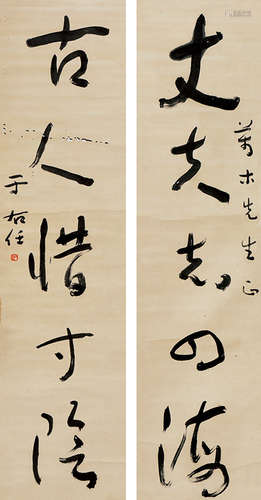 丈夫志四海
萬木先生正
古人惜寸陰
于右任